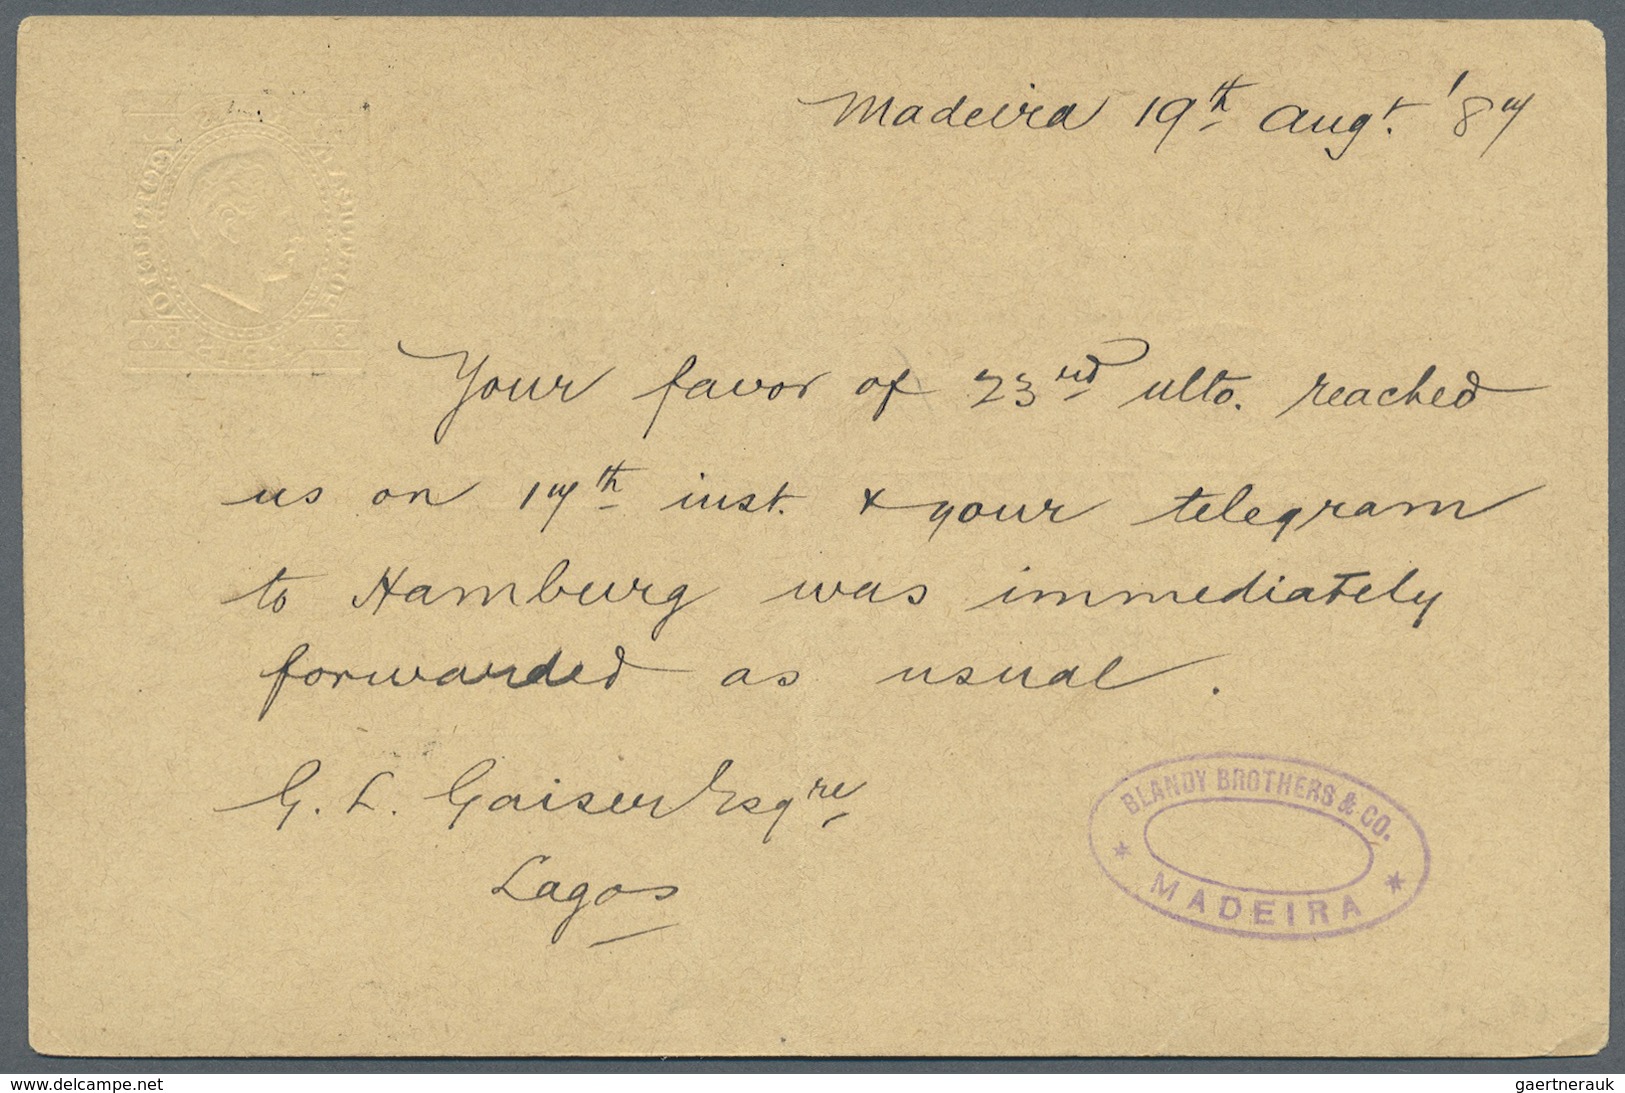 Madeira 19th Augt. '87
Your favor of 23rd ulto. reached
us on 17th inst. & your telegram
to Hamburg was immediately
forwarded as usual.
G. L. Gaiser Esqre
Lagos
BLANDY BROTHERS & CO.
* MADEIRA *
www.delcampe.net
gaertnerauk